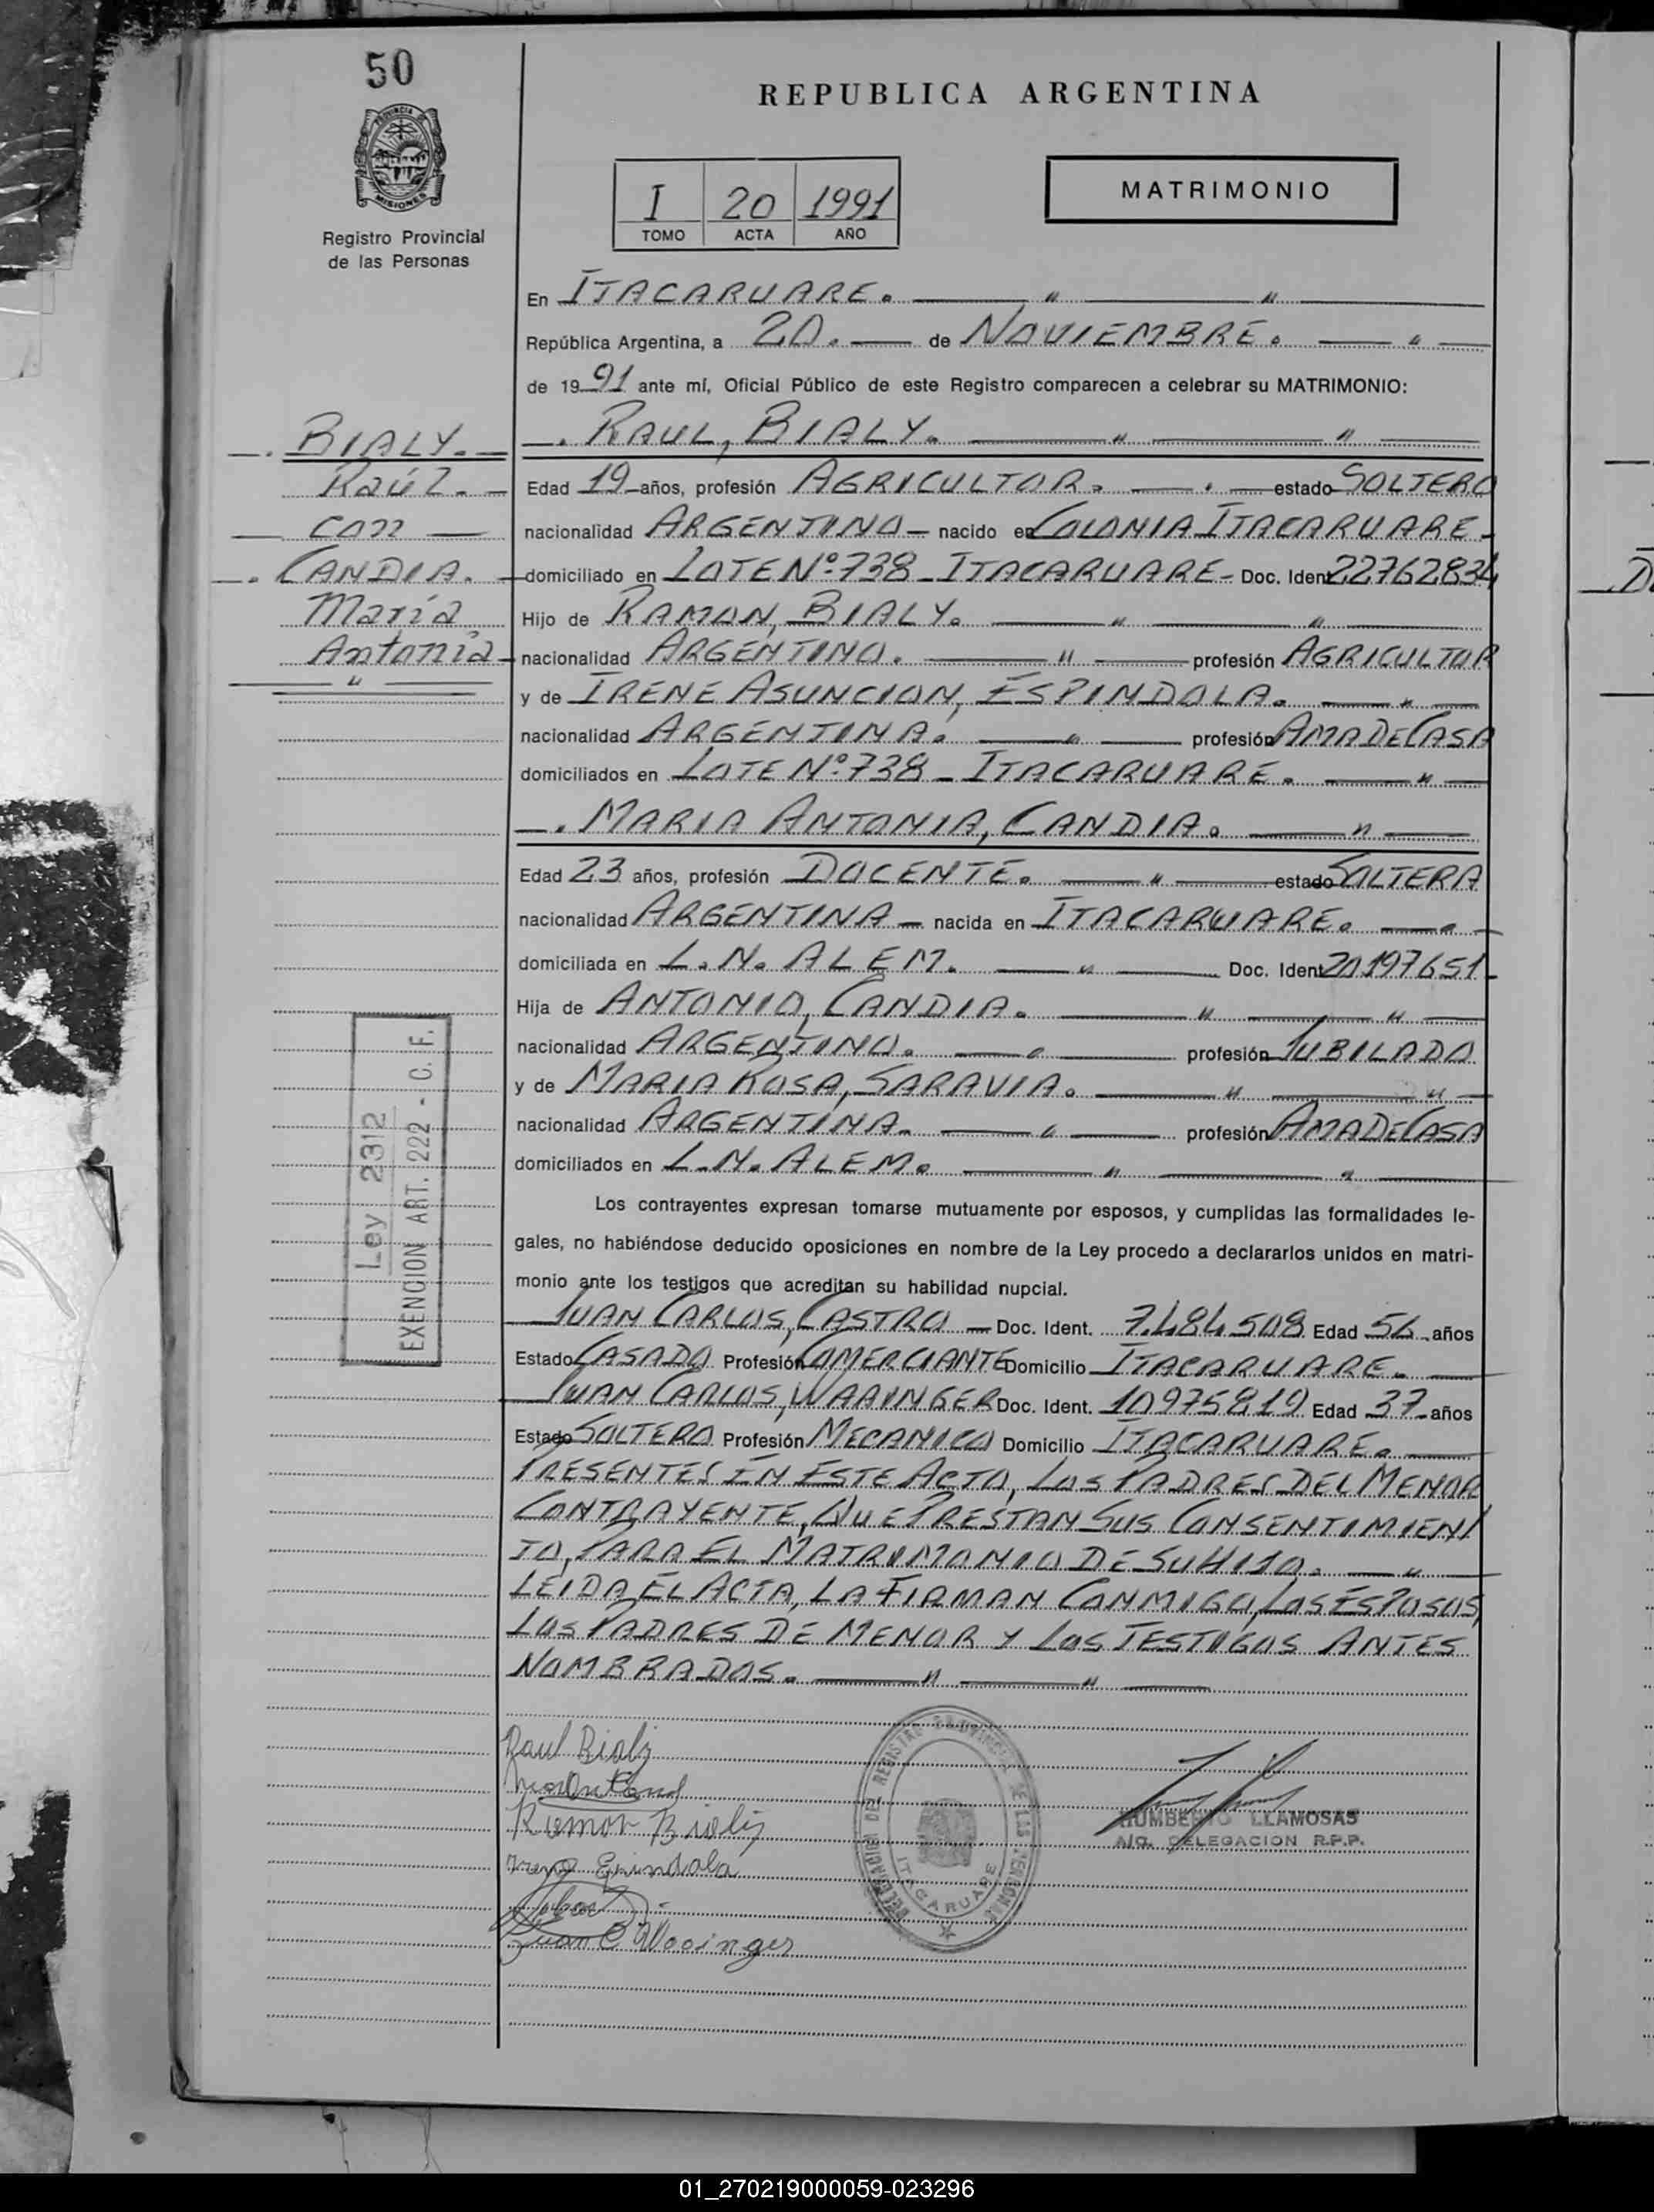 50
PROVINCIA DE
MISIONES
Registro Provincial
de las Personas
REPUBLICA ARGENTINA
I 20 1991
TOMO ACTA AÑO
MATRIMONIO
En ITACARUARE. — " — " —
República Argentina, a 20. — de NOVIEMBRE. — " —
de 1991 ante mí, Oficial Público de este Registro comparecen a celebrar su MATRIMONIO:
—. BIALY. —
Raúl. —
— con —
—. CANDIA. —
María
Antonia —
— " —
—. RAUL, BIALY. — " — " —
Edad 19 — años, profesión AGRICULTOR. — . — estado SOLTERO
nacionalidad ARGENTINO — nacido en COLONIA ITACARUARE —
domiciliado en LOTE Nº 738 — ITACARUARE — Doc. Ident 22762834
Hijo de RAMON, BIALY. — " — " —
nacionalidad ARGENTINO. — " — profesión AGRICULTOR
y de IRENE ASUNCION, ESPINDOLA. — " —
nacionalidad ARGENTINA. — " — profesión AMA DE CASA
domiciliados en LOTE Nº 738 — ITACARUARE. — " —
—. MARIA ANTONIA, CANDIA. — " —
Edad 23 años, profesión DOCENTE. — " — estado SOLTERA
nacionalidad ARGENTINA — nacida en ITACARUARE. — " —
domiciliada en L. N. ALEM. — " — Doc. Ident 20197651 —
Hija de ANTONIO, CANDIA. — " — " —
nacionalidad ARGENTINO. — " — profesión JUBILADO
y de MARIA ROSA, SARAVIA. — " — " —
nacionalidad ARGENTINA. — " — profesión AMA DE CASA
domiciliados en L. N. ALEM. — " — " —
Ley 2312
EXENCION ART. 222 - C. F.
Los contrayentes expresan tomarse mutuamente por esposos, y cumplidas las formalidades le-
gales, no habiéndose deducido oposiciones en nombre de la Ley procedo a declararlos unidos en matri-
monio ante los testigos que acreditan su habilidad nupcial.
JUAN CARLOS, CASTRO — Doc. Ident. 7.484.508 Edad 56 años
Estado CASADO Profesión COMERCIANTE Domicilio ITACARUARE. —
JUAN CARLOS, Doc. Ident. 10975819 Edad 37 — años
Estado SOLTERO Profesión MECANICO Domicilio ITACARUARE. —
PRESENTES EN ESTE ACTO, LOS PADRES DEL MENOR
CONTRAYENTE, QUE PRESTAN SUS CONSENTIMIEN/
TO, PARA EL MATRIMONIO DE SU HIJO. — " —
LEIDA EL ACTA, LA FIRMAN CONMIGO, LOS ESPOSOS,
LOS PADRES DE MENOR Y LOS TESTIGOS ANTES
NOMBRADOS. — " — " —
Raul Bialy
Ramon Bialy
Espindola
Juan C
DELEGACION DEL REGISTRO PROVINCIAL DE LAS PERSONAS
ITACARUARE
HUMBERTO LLAMOSAS
A/C. DELEGACION R.P.P.
01_270219000059-023296